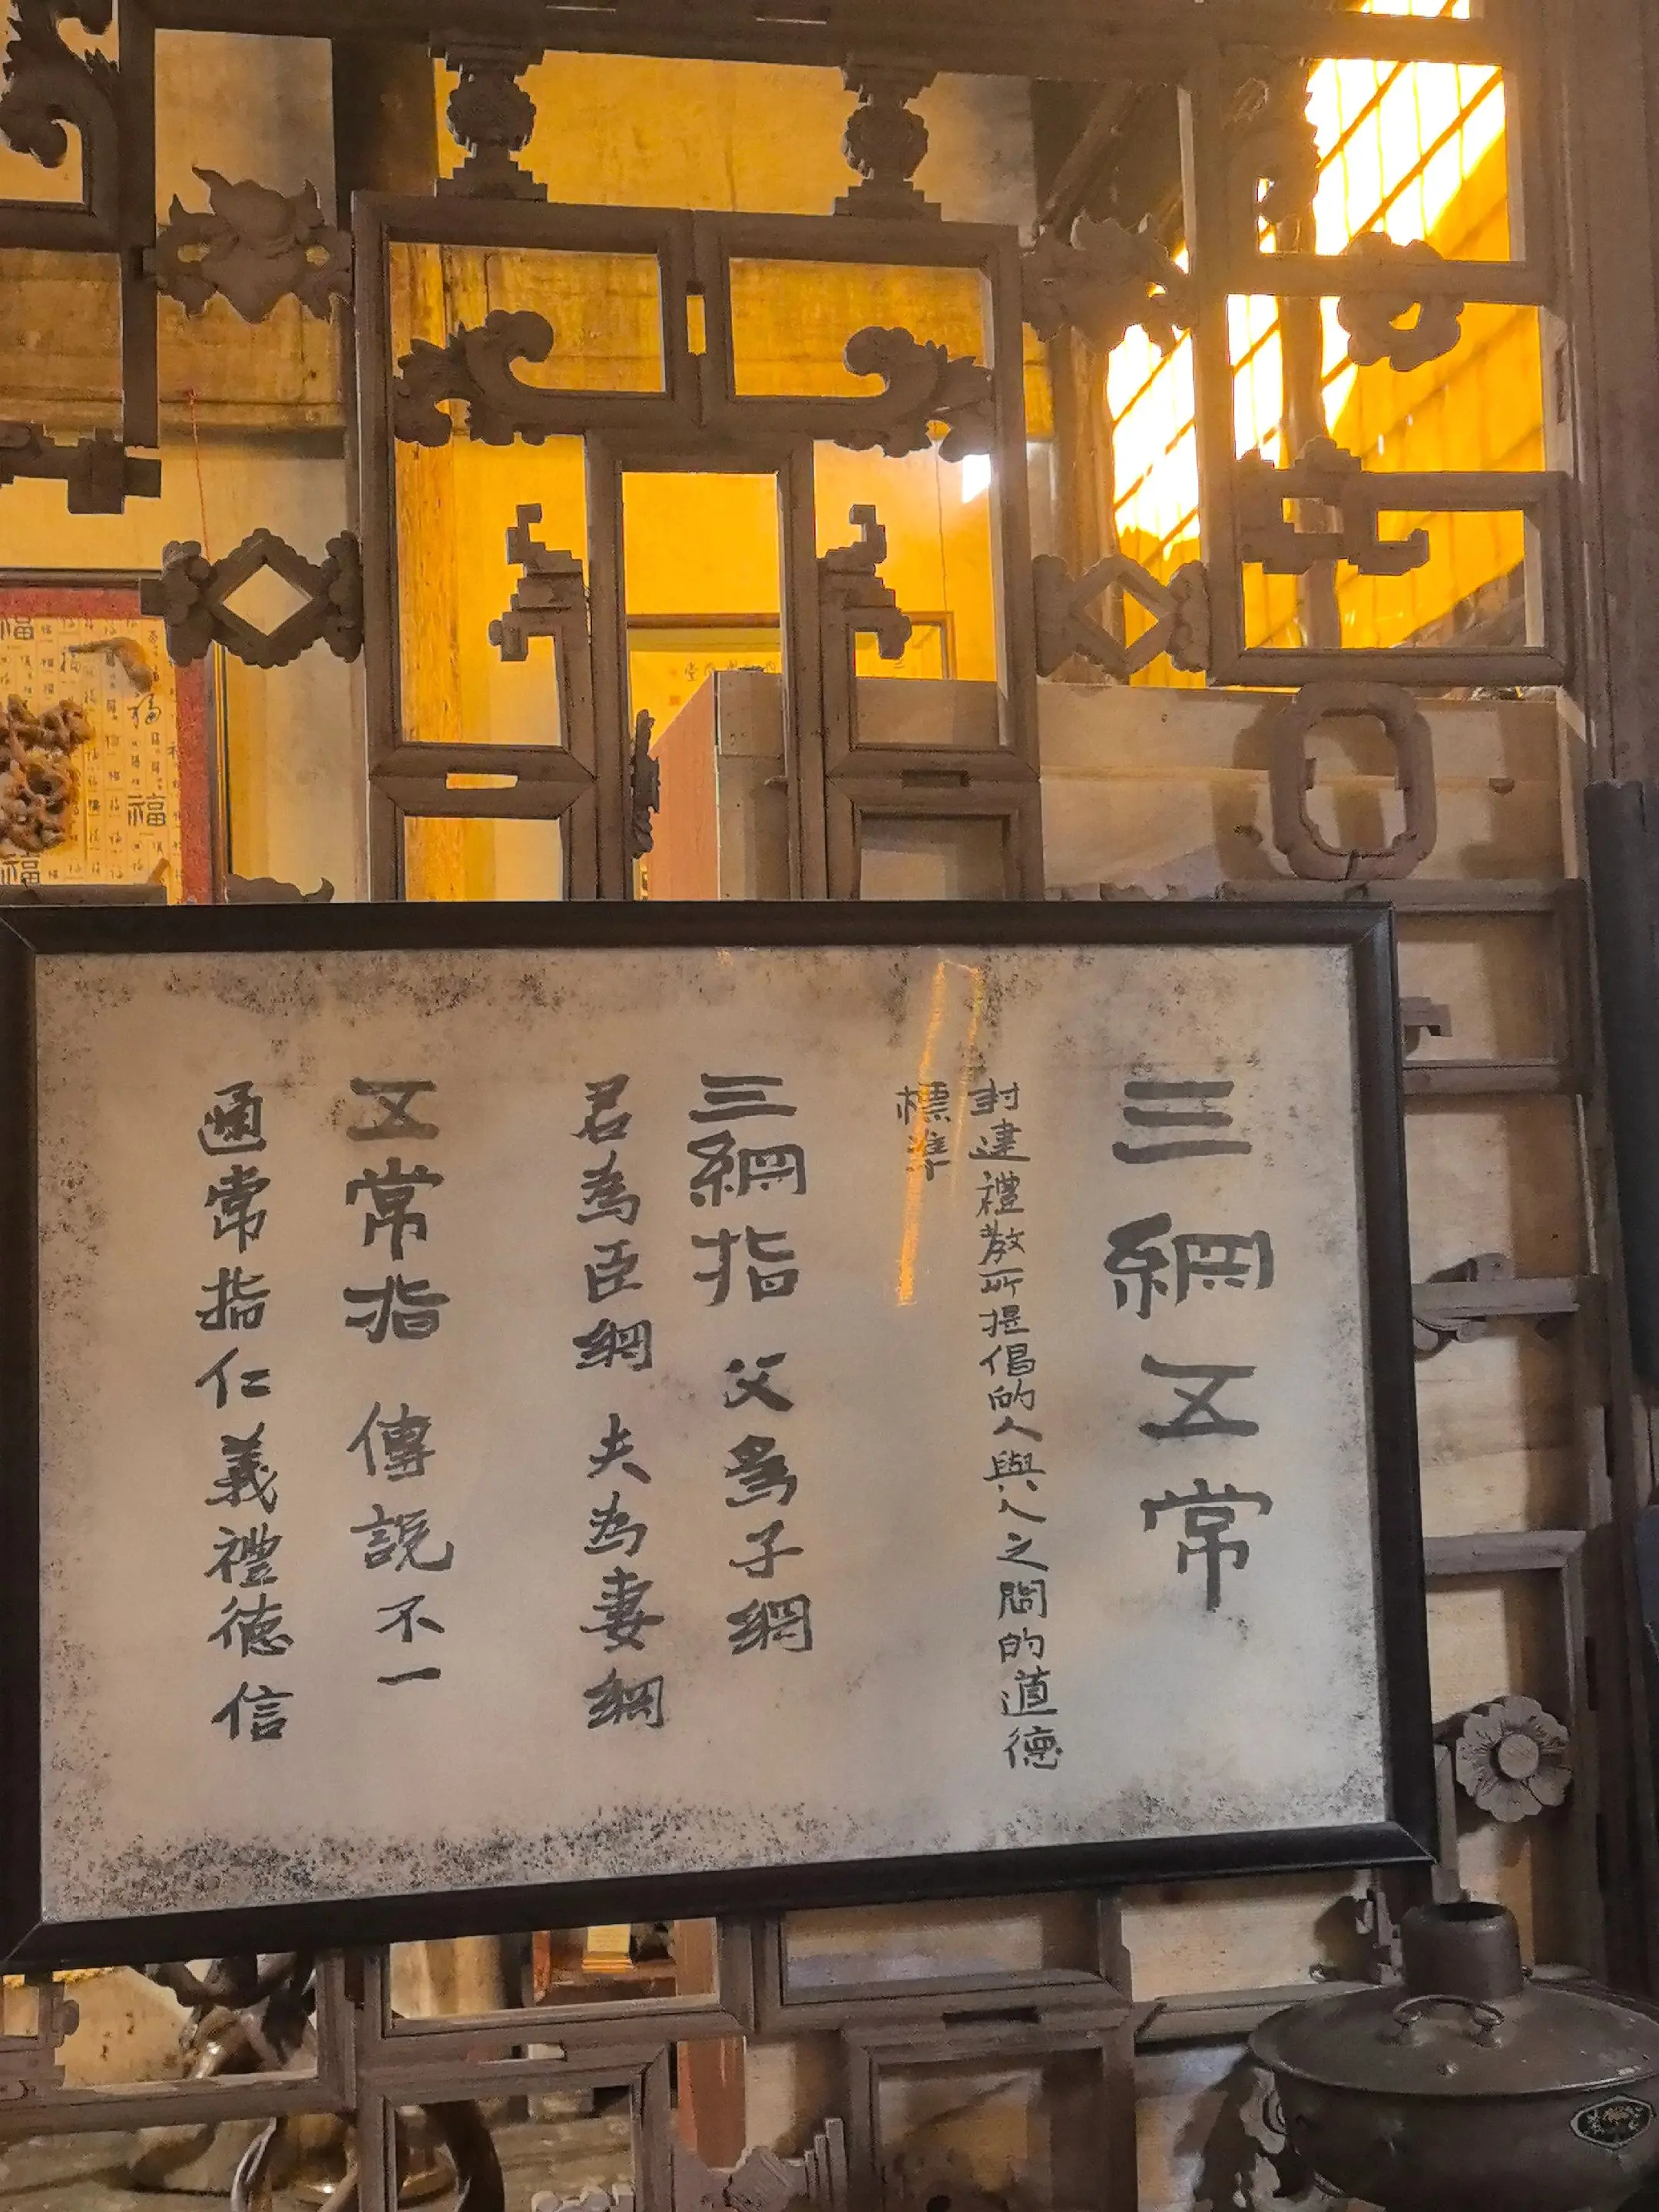 三綱五常
封建禮教所提倡的人與人之間的道德
標準
三綱指 父為子綱
君為臣綱 夫為妻綱
五常指 傳說不一
通常指仁義禮德信
福
福
福